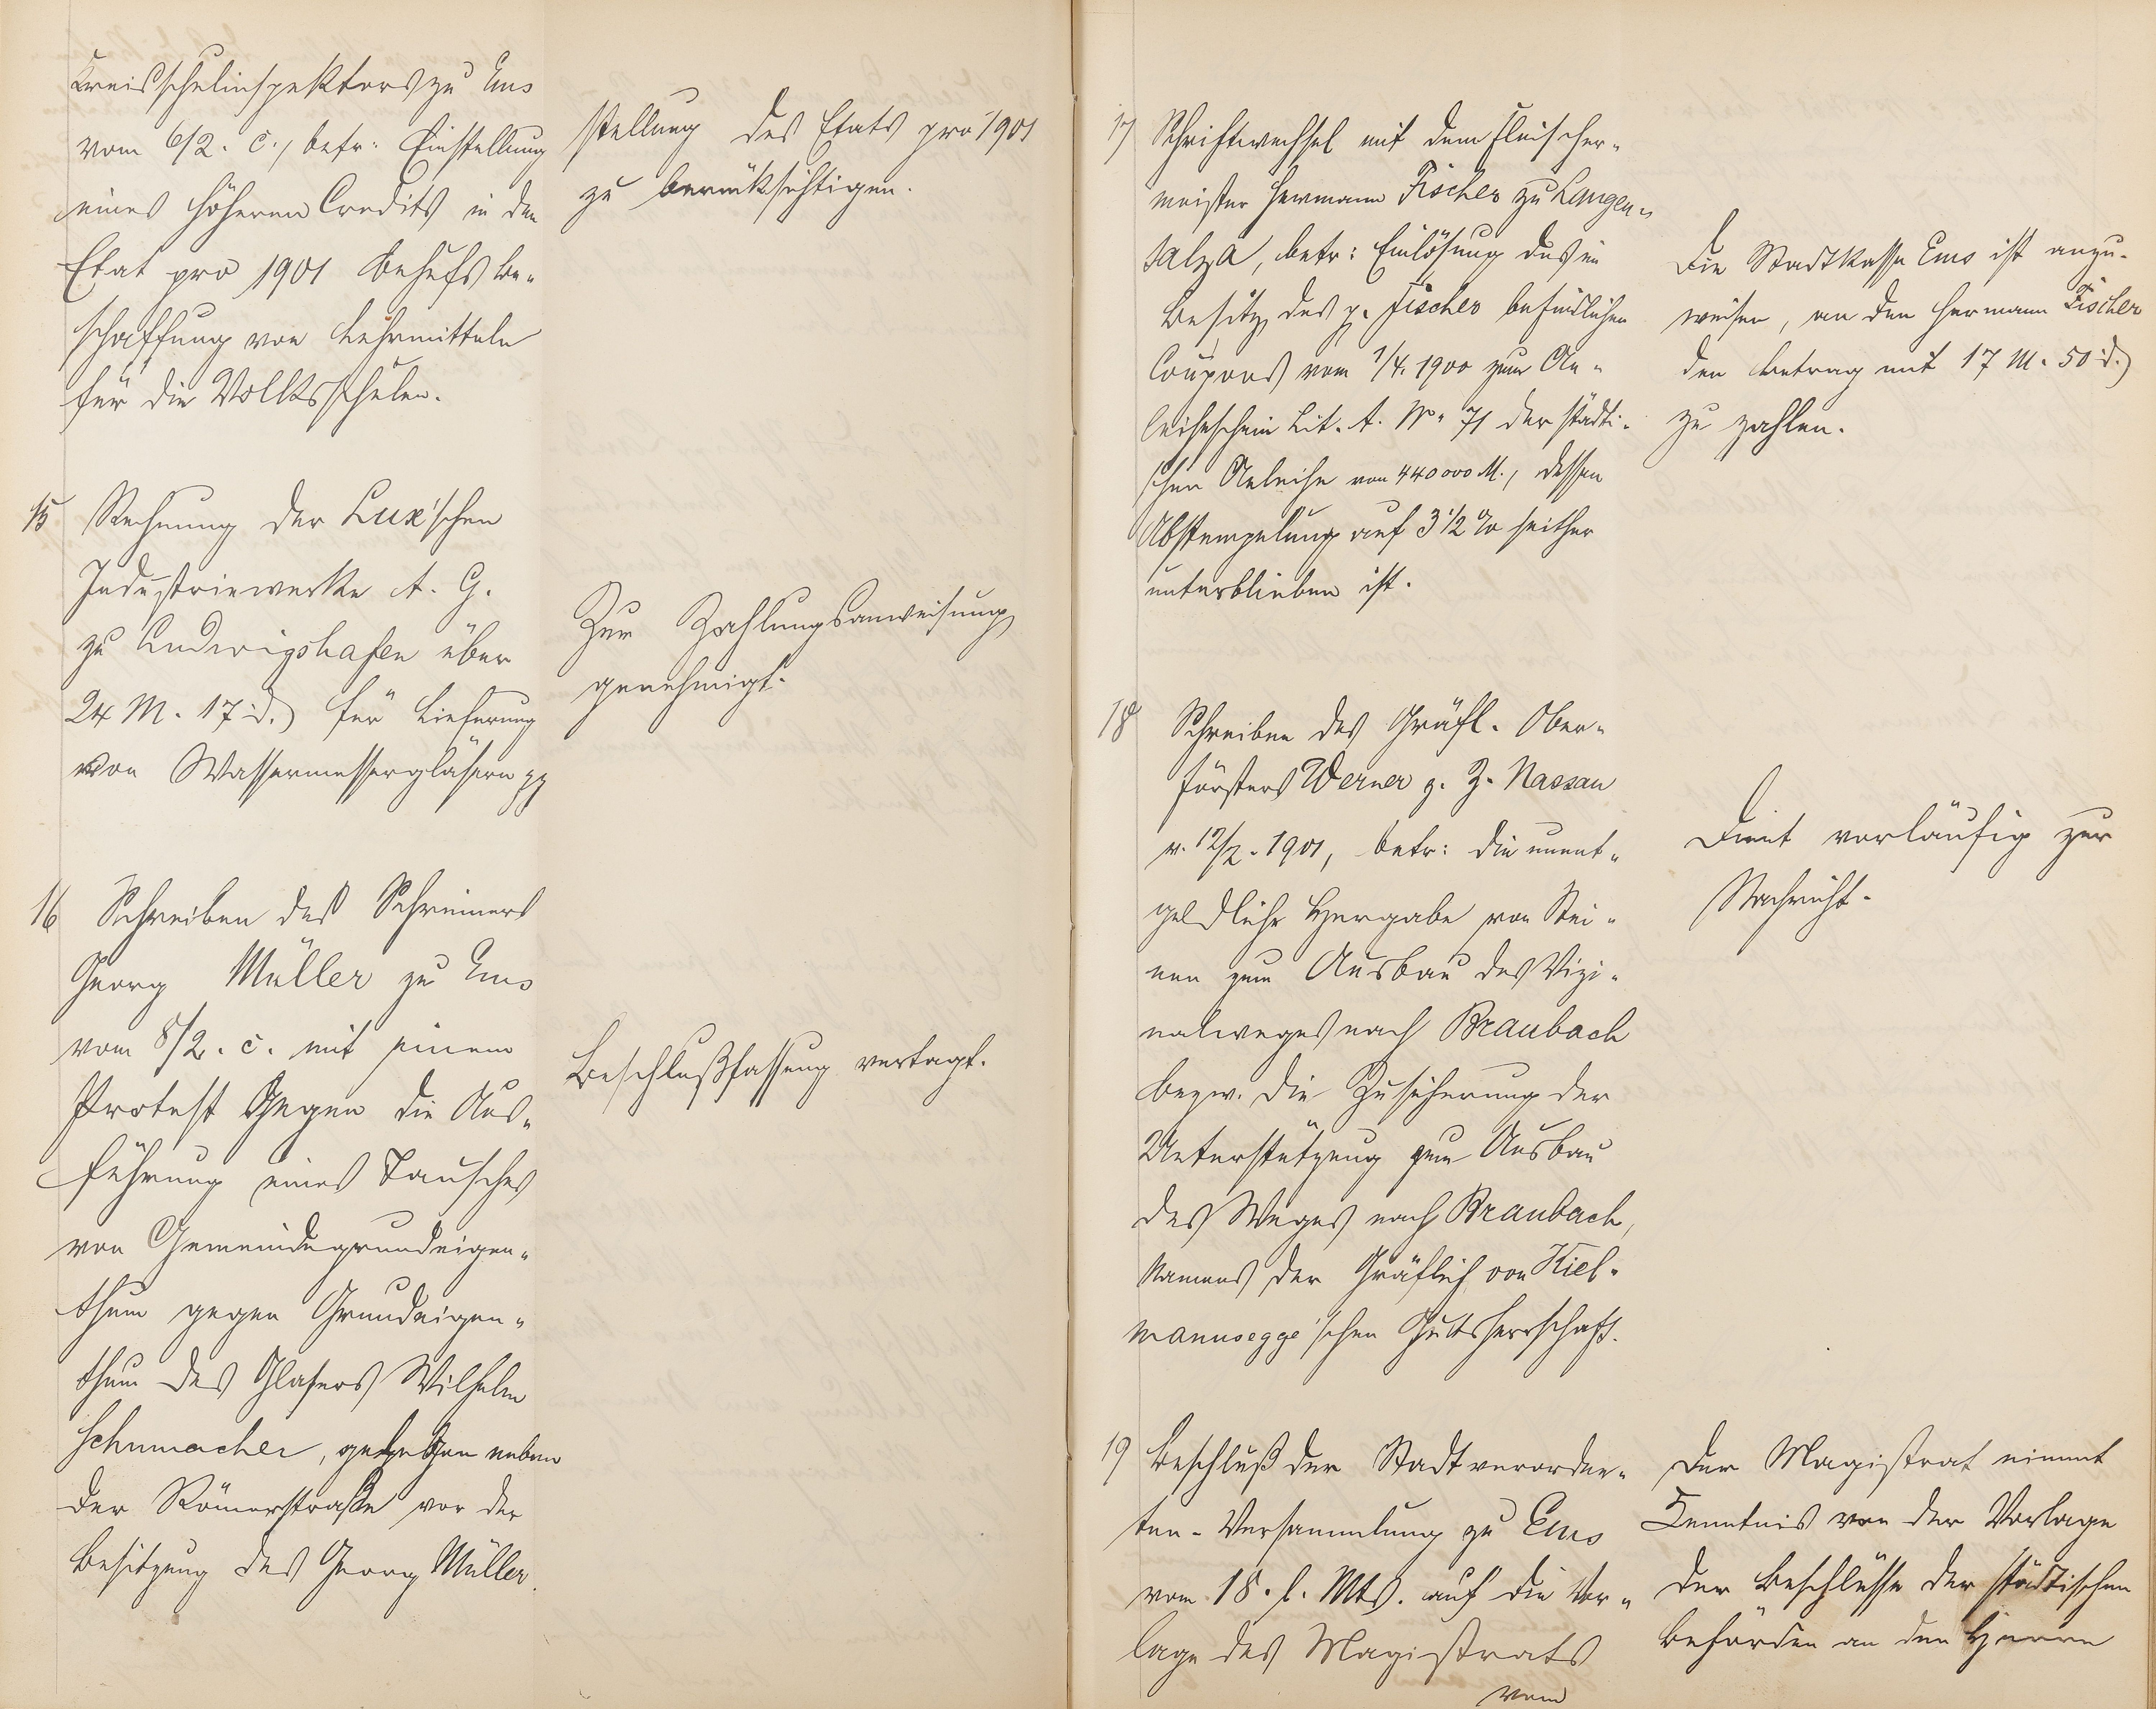 Kreisschulinspektors zu Ems
vom 6/2. c., betr: Einstellung
eines höheren Credits in den
Etat pro 1901 behufs Be„
schaffung von Lehrmitteln
für die Volksschulen.
stellung des Etats pro 1901
zu berücksichtigen.
15 Rechnung der Lux'schen
Industriewerke A. G.
zu Ludwigshafen über
24 M. 17 d. für Lieferung
von Wassermessergläsern pp
Zur Zahlungsanweisung
genehmigt.
16 Schreiben des Schreiners
Georg Müller zu Ems
vom 8/2. c. mit einem
Protest gegen die Aus„
führung eines Tausches
von Gemeindegrundeigen„
thum gegen Grundeigen„
thum des Glasers Wilhelm
Schumacher, gelegen neben
der Römerstraße vor der
Besitzung des Georg Müller.
Beschlußfassung vertagt.
17 Schriftwechsel mit dem Fleischer„
meister Hermann Fischer zu Langen„
salza, betr: Einlösung des im
Besitz des p. Fischer befindlichen
Coupons vom 1/4. 1900 zum An„
leiheschein Lit. A. No 71 der städti„
schen Anleihe von 440000 M., dessen
Abstempelung auf 3 1/2 % seither
unterblieben ist.
Die Stadtkasse Ems ist anzu„
weisen, an den Hermann Fischer
den Betrag mit 17 M. 50 d.
zu zahlen.
18 Schreiben des Gräfl. Ober„
försters Werner z. Z. Nassau
v. 12/2. 1901, betr: die unent„
geldliche Hergabe von Stei„
nen zum Ausbau des Vizi„
nalweges nach Braubach
bezw. die Zusicherung der
Unterstützung zum Ausbau
des Weges nach Braubach,
Namens der Gräflich von Kiel„
mannsegge'schen Gutsherrschaft.
Dient vorläufig zur
Nachricht.
19 Beschluß der Stadtverordne„
ten-Versammlung zu Ems
vom 18. l. Mts. auf die Vor„
lage des Magistrats
vom
Der Magistrat nimmt
Kenntnis von der Vorlage
der Beschlüsse der städtischen
Behörden an den Herrn